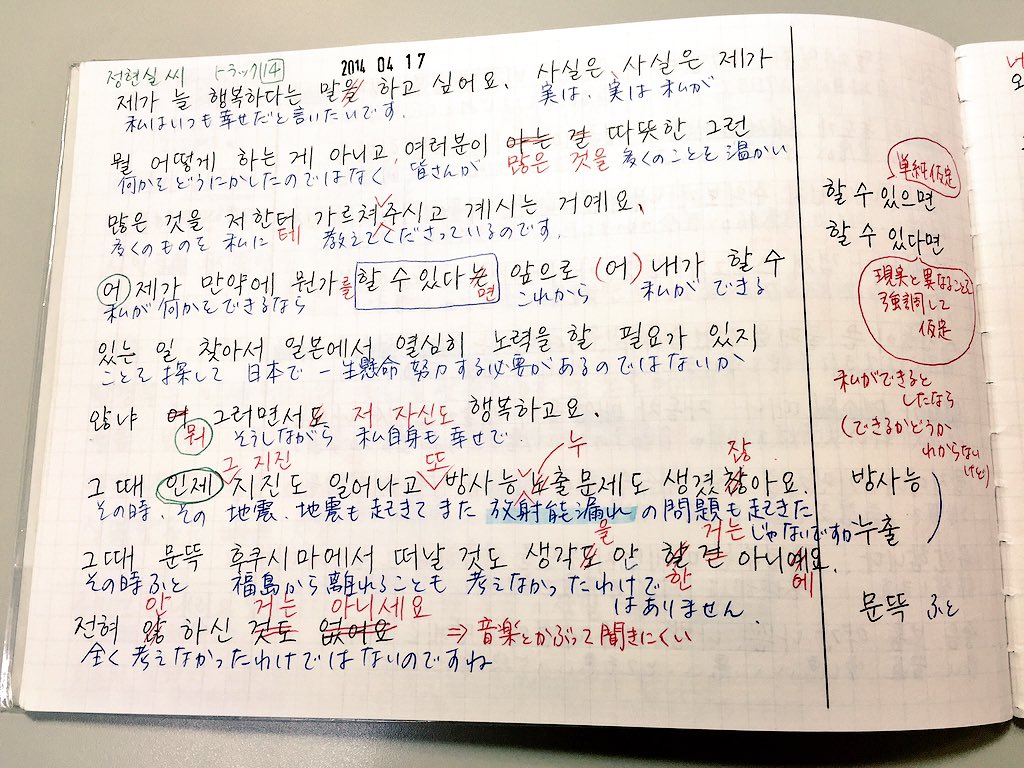 정현실 씨 トラック14 2014 04 17
제가 늘 행복하다는 말을 하고 싶어요. 사실은, 사실은 제가
私はいつも幸せだと言いたいです. 実は、実は私が
뭘 어떻게 하는 게 아니고, 여러분이 아는 걸 따뜻한 그런
何かをどうにかしたのではなく 皆さんが 많은 것을 多くのことを温かい
많은 것을 저한터 가르쳐주시고 계시는 거예요.
多くのものを 私に 테 教えてくださっているのです.
어 제가 만약에 뭔가를 할 수 있다는 앞으로 (어) 내가 할 수
私が何かをできるなら 면 これから 私ができる
있는 일 찾아서 일본에서 열심히 노력을 할 필요가 있지
ことを探して 日本で一生懸命努力する必要があるのではないか
않냐 그러면서도 저 자신도 행복하고요.
뭐 そうしながら 私自身も幸せで.
그 지진 또 누 잖
그 때 인제 지진도 일어나고 방사능 노출문제도 생겼잖아요.
その時、その 地震、地震も起きてまた 放射能漏れの問題も起きたじゃないですか
을 거는
그때 문뜩 후쿠시마에서 떠날 것도 생각도 안 할 건 아니예요.
その時ふと 福島から離れることも 考えなかったわけではありません. 한 에
안 거는 아니세요
전혀 않 하신 것도 없어요 ⇒音楽とかぶって聞きにくい
全く考えなかったわけではないのですね
単純仮定
할 수 있으면
할 수 있다면
現実と異なることを
強調して
仮定
私ができると
したなら
(できるかどうか
わからない
けど)
방사능
누출
문뜩 ふと